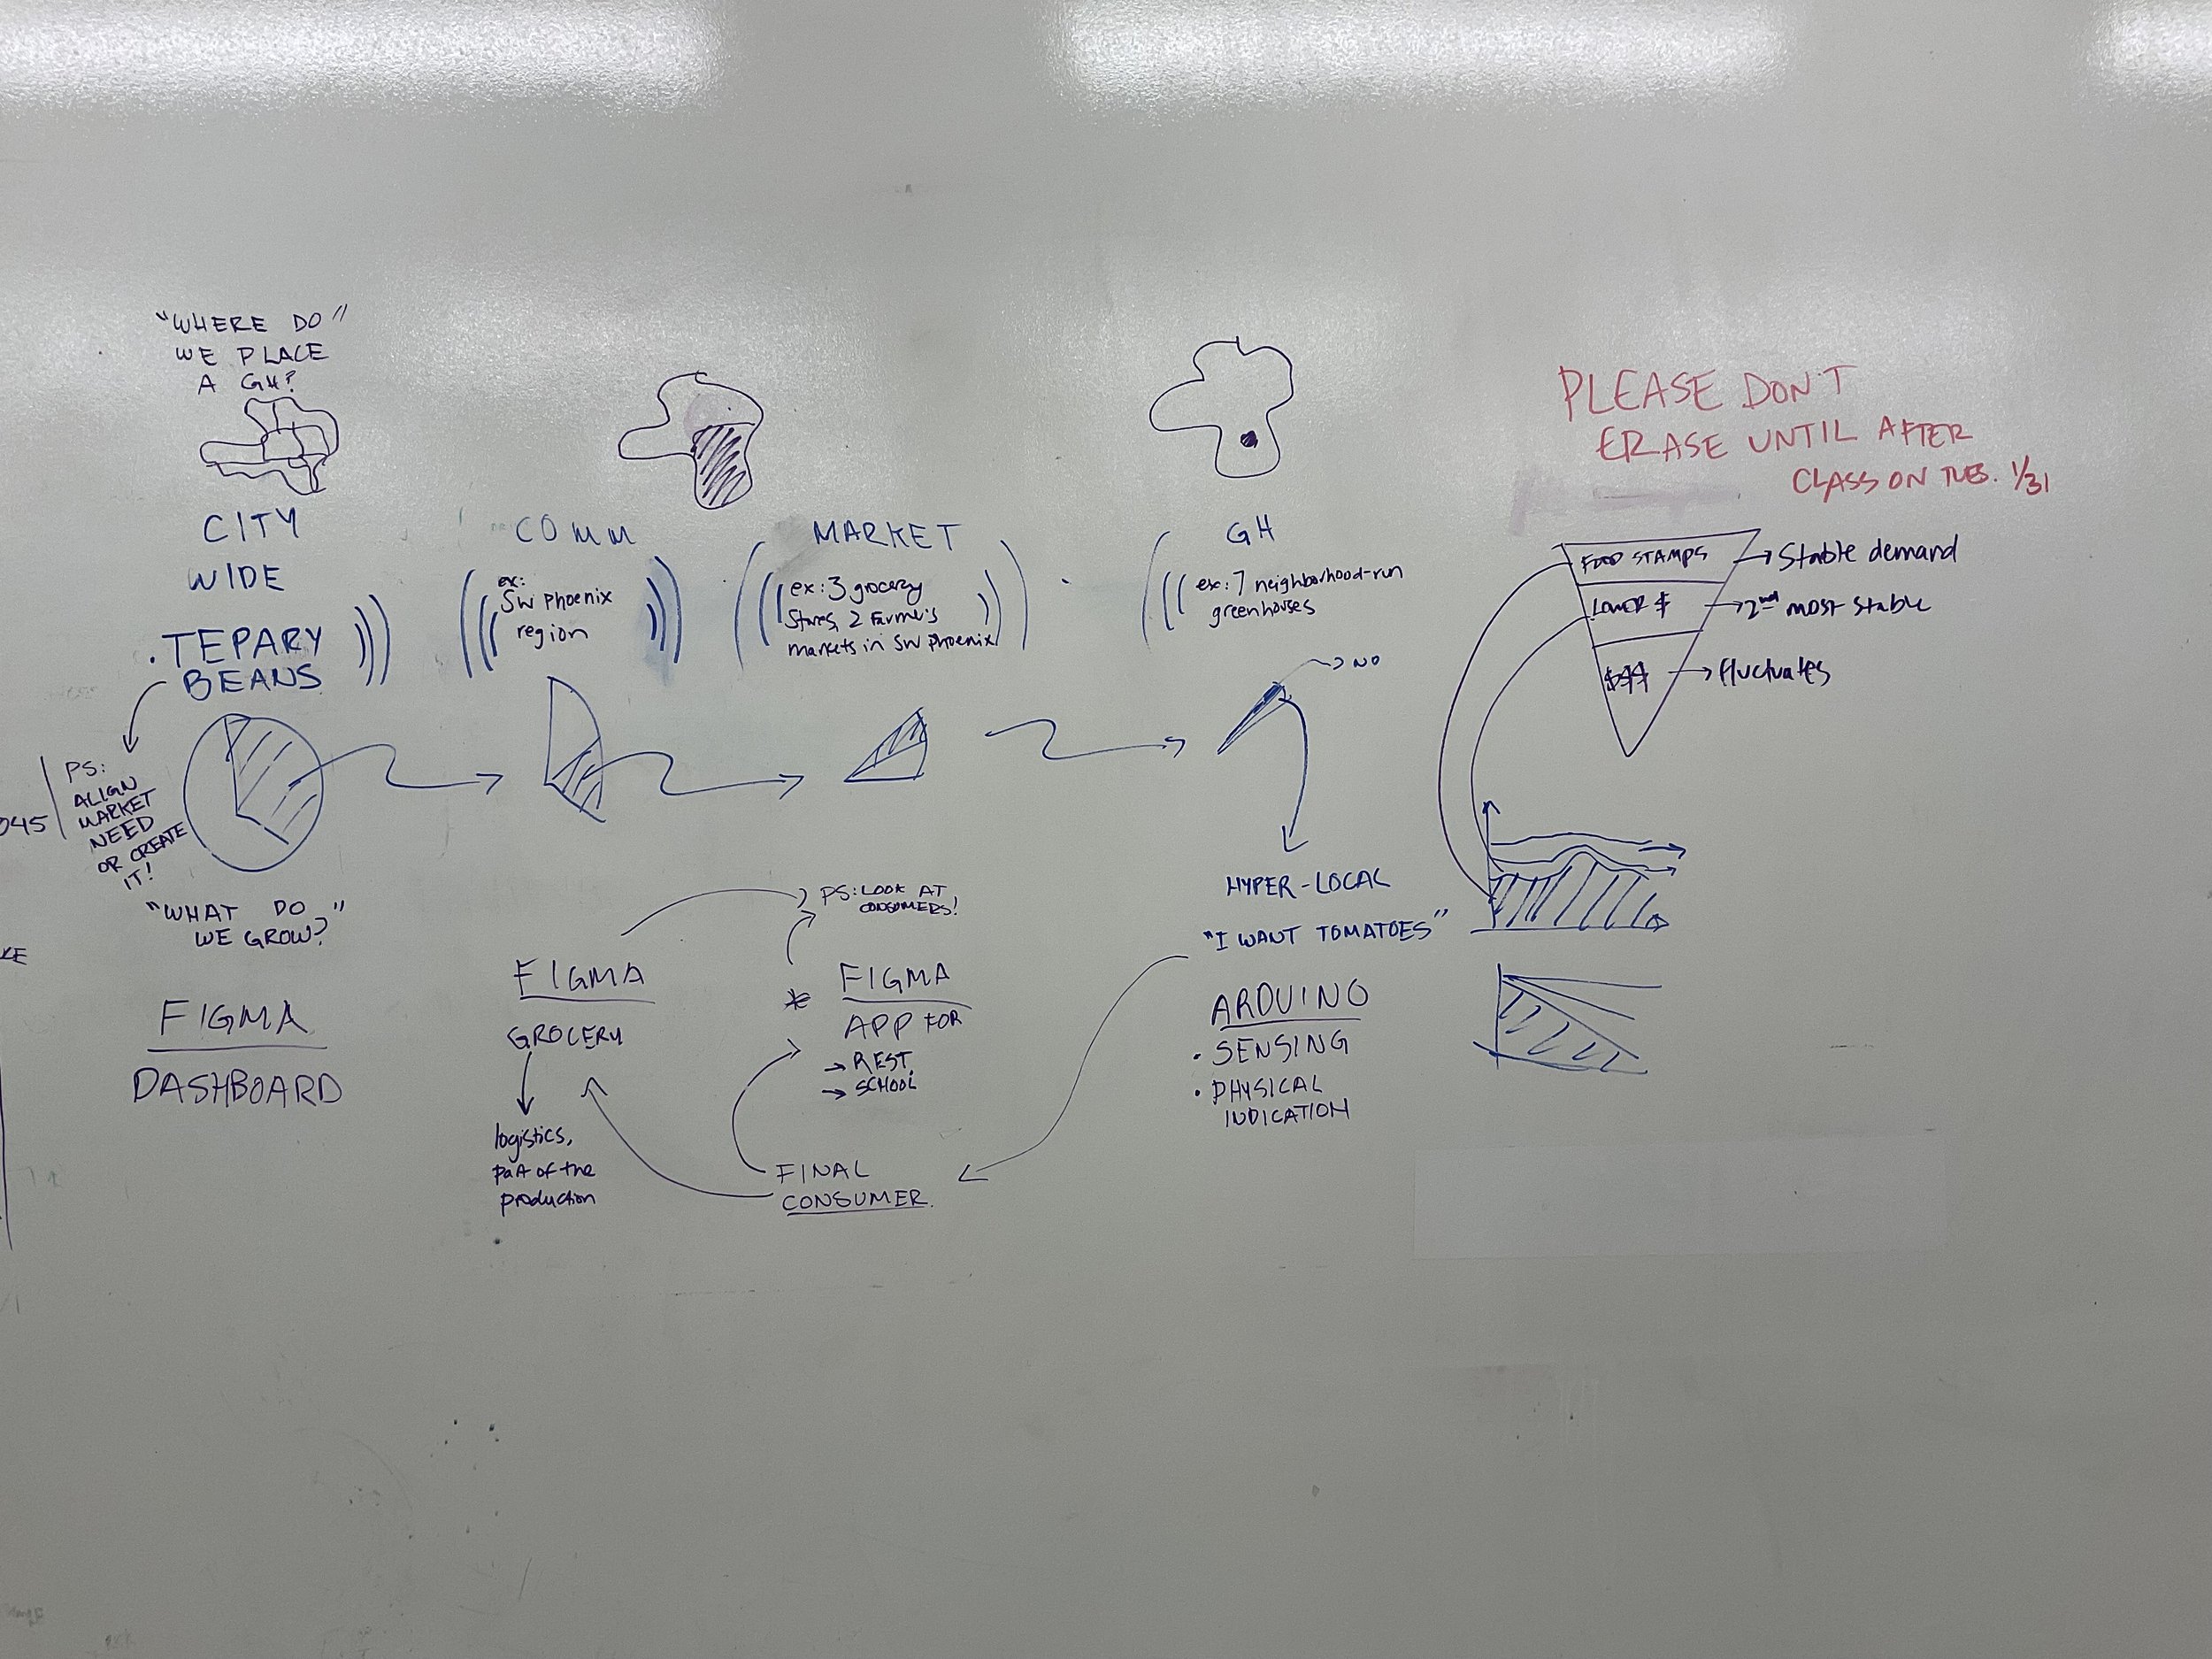 "WHERE DO"
WE PLACE
A GH?
CITY
WIDE
. TEPARY
BEANS
PS:
ALIGN
MARKET
NEED
OR CREATE
IT!
045
KE
"WHAT DO"
WE GROW?
FIGMA
DASHBOARD
COMM
ex:
SW Phoenix
region
FIGMA
GROCERY
logistics,
part of the
production
MARKET
ex: 3 grocery
Stores, 2 Farmer's
markets in SW Phoenix
PS: LOOK AT
CONSUMERS!
* FIGMA
APP FOR
→ REST.
→ SCHOOL
FINAL
CONSUMER.
GH
ex: 7 neighborhood-run
greenhouses
→ NO
HYPER-LOCAL
"I WANT TOMATOES"
ARDUINO
• SENSING
• PHYSICAL
INDICATION
PLEASE DON'T
ERASE UNTIL AFTER
CLASS ON TUES. 1/31
FOOD STAMPS → Stable demand
LOWER $ → 2nd most stable
$$$ → fluctuates